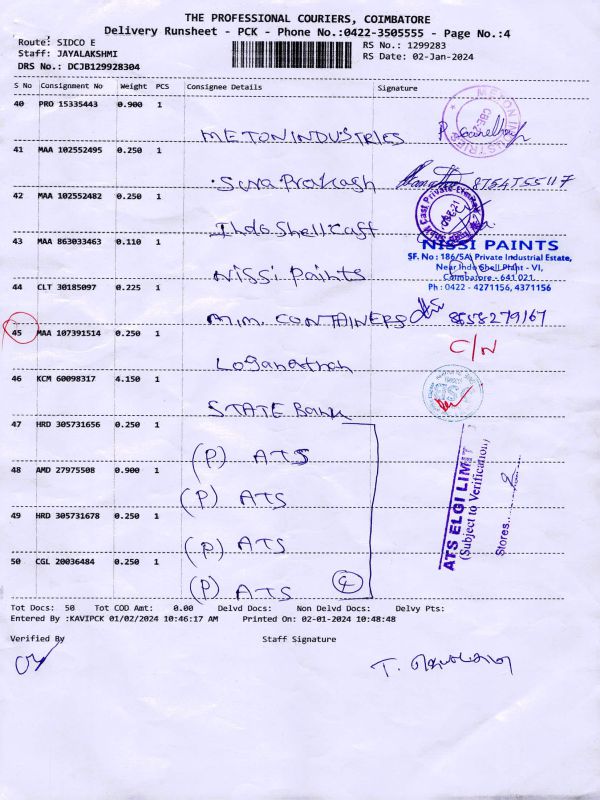 THE PROFESSIONAL COURIERS, COIMBATORE
Delivery Runsheet - PCK - Phone No.:0422-3505555 - Page No.:4
Route: SIDCO E
Staff: JAYALAKSHMI
DRS No.: DCJB129928304
RS No.: 1299283
RS Date: 02-Jan-2024
S No Consignment No Weight PCS Consignee Details Signature
40 PRO 15335443 0.900 1
METON INDUSTRIES
41 MAA 102552495 0.250 1
Surya Prakash
42 MAA 102552482 0.250 1
Indo Shell Cast
43 MAA 863033463 0.110 1
NISSI PAINTS
SF. No : 186/5A, Private Industrial Estate,
Near Indo Shell Plant - VI,
Coimbatore - 641 021.
Ph : 0422 - 4271156, 4371156
Nissi Paints
44 CLT 30185097 0.225 1
M.M. CONTAINERS 8558279167
45 MAA 107391514 0.250 1
C/N
Loganathan
46 KCM 60098317 4.150 1
STATE Bank
47 HRD 305731656 0.250 1
(P) ATS
48 AMD 27975508 0.900 1
(P) ATS
49 HRD 305731678 0.250 1
(P) ATS
50 CGL 20036484 0.250 1
(P) ATS 4
ATS ELGI LIMIT
(Subject to Verification)
Stores..
Tot Docs: 50 Tot COD Amt: 0.00 Delvd Docs: Non Delvd Docs: Delvy Pts:
Entered By :KAVIPCK 01/02/2024 10:46:17 AM Printed On: 02-01-2024 10:48:48
Verified By Staff Signature